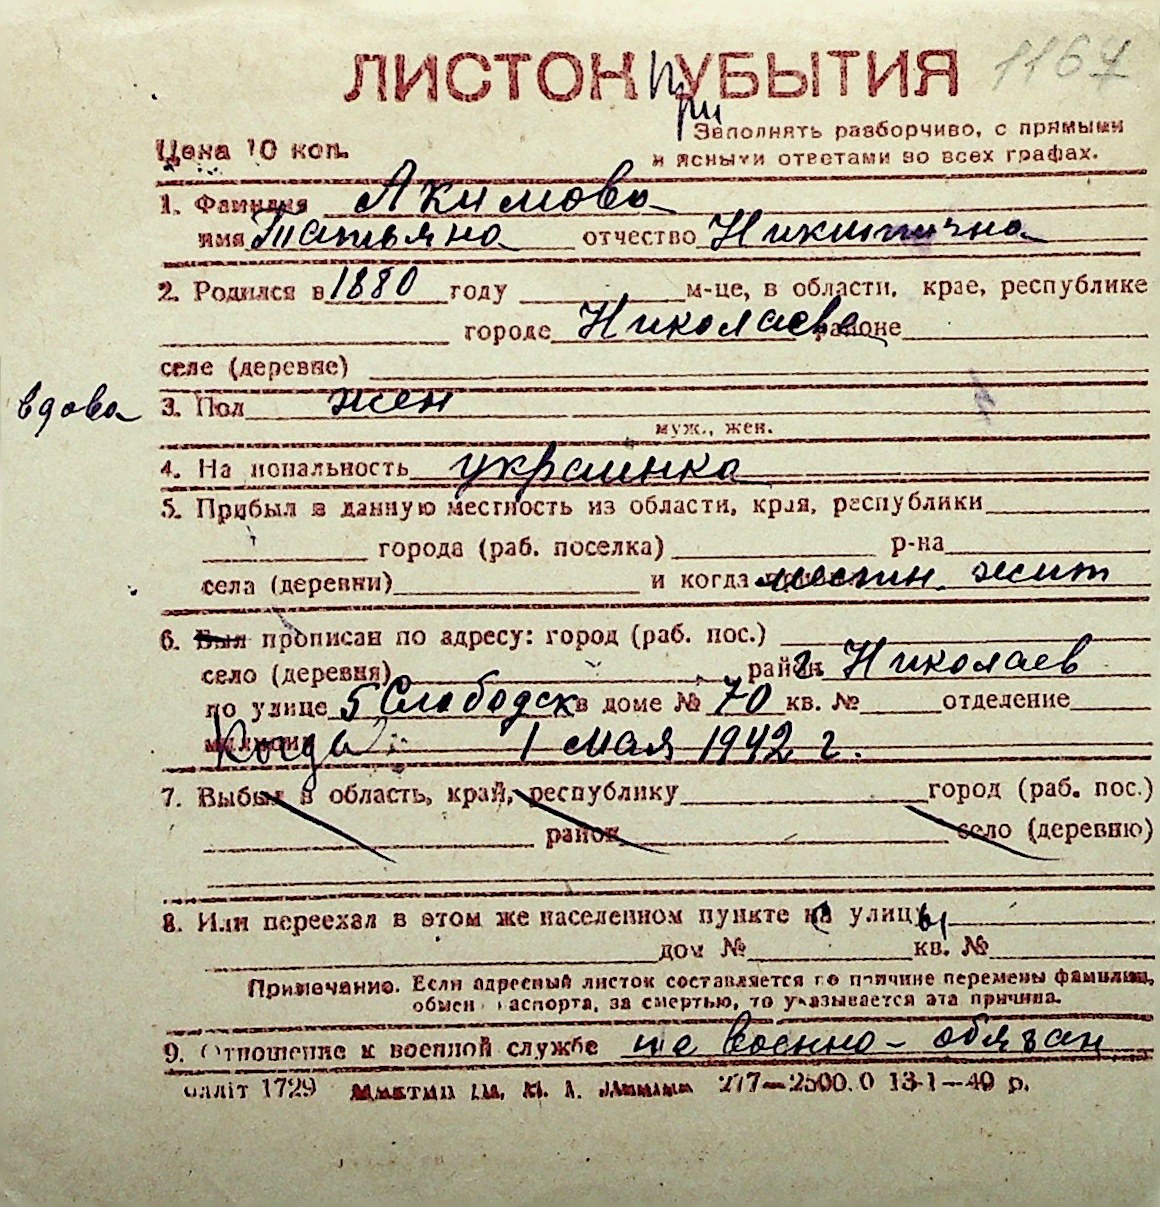 ЛИСТОК УБЫТИЯ
при
1167
Заполнять разборчиво, с прямыми
Цена 10 коп.
и ясными ответами во всех графах.
1. Фамилия Акимова
имя Татьяна отчество Никитична
2. Родился в 1880 году м-це, в области, крае, республике
городе Николаеве районе
селе (деревне)
вдова 3. Пол жен
муж., жен.
4. Национальность украинка
5. Прибыл в данную местность из области, края, республики
города (раб. поселка) р-на
села (деревни) и когда местн. жит
6. Был прописан по адресу: город (раб. пос.)
село (деревня) район г. Николаев
по улице 5 Слободск в доме № 70 кв. № отделение
милиции Когда 1 мая 1942 г.
7. Выбыл в область, край, республику город (раб. пос.)
район село (деревню)
8. Или переехал в этом же населенном пункте с улицы
дом № кв. №
Примечание. Если адресный листок составляется по причине перемены фамилии,
обмен паспорта, за смертью, то указывается эта причина.
9. Отношение к военной службе не военно-обязан
1729 277—2500.0 13-1—40 р.